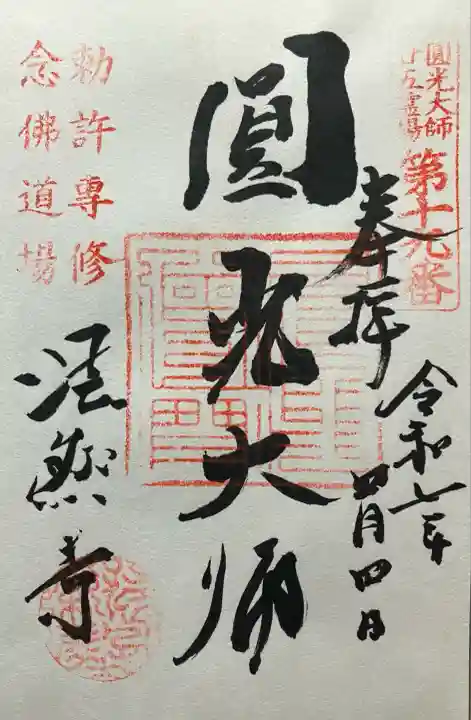 圓光大師
廿五霊場
第十九番
奉拝
令和七年
四月四日
圓光大師
勅許専修
念佛道場
法然寺